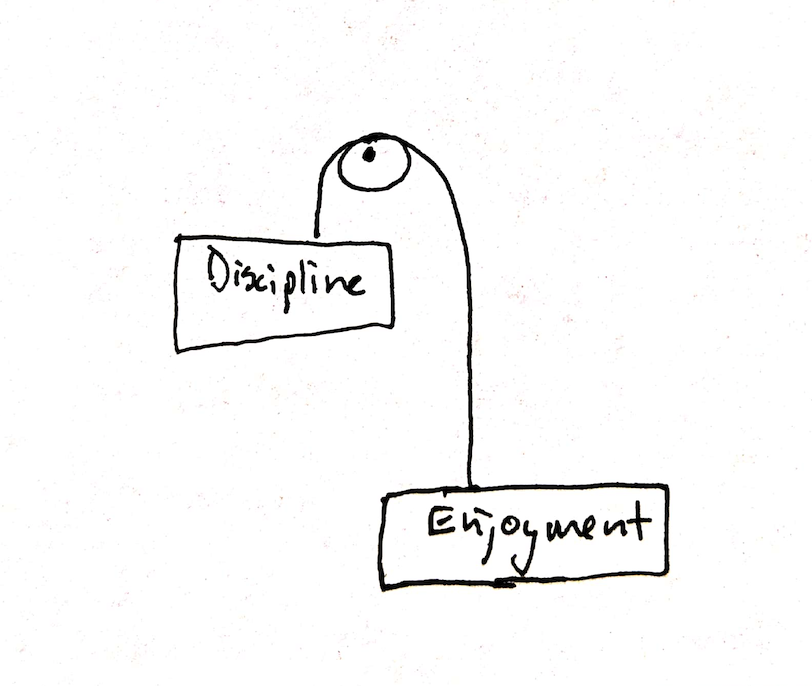 Discipline
Enjoyment